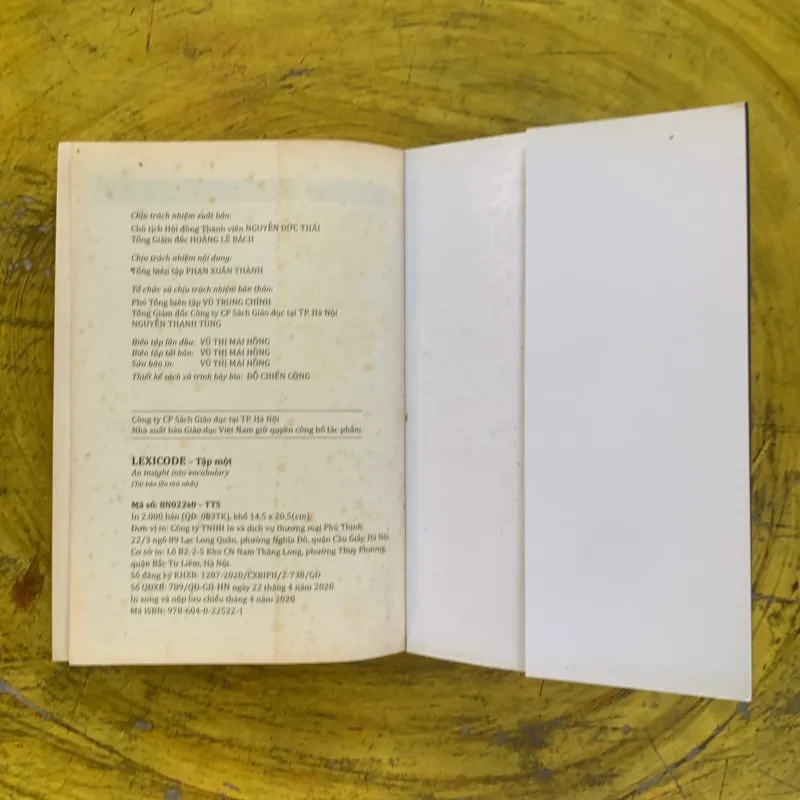 Chịu trách nhiệm xuất bản:
Chủ tịch Hội đồng Thành viên NGUYỄN ĐỨC THÁI
Tổng Giám đốc HOÀNG LÊ BÁCH
Chịu trách nhiệm nội dung:
Tổng biên tập PHAN XUÂN THÀNH
Tổ chức và chịu trách nhiệm bản thảo:
Phó Tổng biên tập VŨ TRUNG CHÍNH
Tổng Giám đốc Công ty CP Sách Giáo dục tại TP. Hà Nội
NGUYỄN THANH TÙNG
Biên tập lần đầu: VŨ THỊ MAI HỒNG
Biên tập tái bản: VŨ THỊ MAI HỒNG
Sửa bản in: VŨ THỊ MAI HỒNG
Thiết kế sách và trình bày bìa: ĐỖ CHIẾN CÔNG
Công ty CP Sách Giáo dục tại TP. Hà Nội
Nhà xuất bản Giáo dục Việt Nam giữ quyền công bố tác phẩm.
LEXICODE – Tập một
An insight into vocabulary
(Tái bản lần thứ nhất)
Mã số: 8N02260 – TTS
In 2.000 bản (QĐ: 003TK), khổ 14,5 x 20,5(cm).
Đơn vị in: Công ty TNHH In và dịch vụ thương mại Phú Thịnh.
22/3 ngõ 89 Lạc Long Quân, phường Nghĩa Đô, quận Cầu Giấy, Hà Nội
Cơ sở in: Lô B2-2-5 Khu CN Nam Thăng Long, phường Thụy Phương,
quận Bắc Từ Liêm, Hà Nội.
Số đăng ký KHXB: 1287-2020/CXBIPH/2-738/GD
Số QĐXB: 789/QĐ-GD-HN ngày 22 tháng 4 năm 2020
In xong và nộp lưu chiểu tháng 4 năm 2020
Mã ISBN: 978-604-0-22522-1